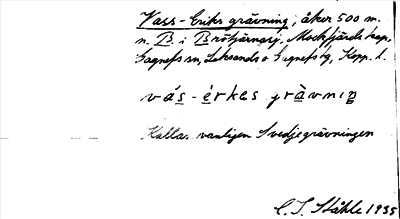 Vass-Eriks grävning, åker 500 m.
n. B. i Brötjärnarj, Mockfjärds kap,
Gagnefs sn, Leksands o Gagnefs tg, Kopp. l.
vás-érkes gràvniŋ
Kallas vanligen Svedjegrävningen
C. I. Ståhle 1935